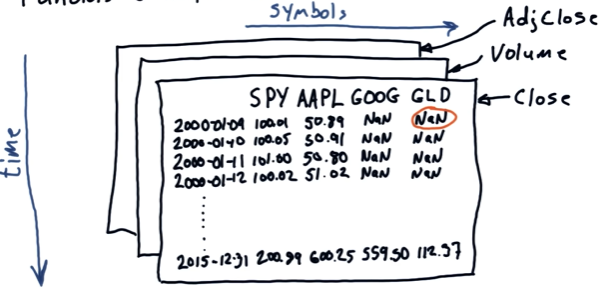 symbols
AdjClose
Volume
Close
time
SPY AAPL GOOG GLD
2000-01-09 100.01 50.89 NaN NaN
2000-01-10 100.05 50.91 NaN NaN
2000-01-11 101.00 50.80 NaN NaN
2000-01-12 100.02 51.02 NaN NaN
2015-12-31 200.99 600.25 559.50 112.37